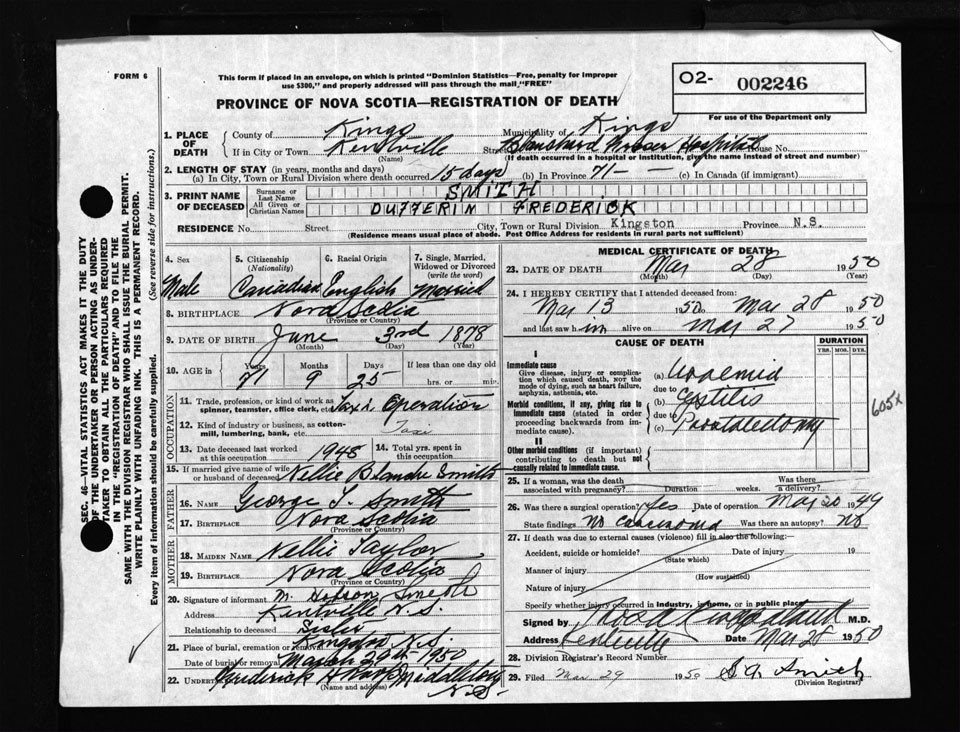 FORM 6
This form if placed in an envelope, on which is printed "Dominion Statistics—Free, penalty for improper
use $300," and properly addressed will pass through the mail "FREE"
O2- 002246
For use of the Department only
PROVINCE OF NOVA SCOTIA—REGISTRATION OF DEATH
1. PLACE OF DEATH
County of Kings Municipality of Kings
If in City or Town Kentville Street Hospital House No.
(Name) (If death occurred in a hospital or institution, give the name instead of street and number)
2. LENGTH OF STAY (in years, months and days)
(a) In City, Town or Rural Division where death occurred 15 days (b) In Province 71 - - (c) In Canada (if immigrant)
3. PRINT NAME OF DECEASED
Surname or Last Name SMITH
All Given or Christian Names DUFFERIM FREDERICK
RESIDENCE No. Street City, Town or Rural Division Kingston Province N.S.
(Residence means usual place of abode. Post Office Address for residents in rural parts not sufficient)
SEC. 46—VITAL STATISTICS ACT MAKES IT THE DUTY
OF THE UNDERTAKER OR PERSON ACTING AS UNDER-
TAKER TO OBTAIN ALL THE PARTICULARS REQUIRED
IN THE "REGISTRATION OF DEATH" AND TO FILE THE
SAME WITH THE DIVISION REGISTRAR WHO SHALL ISSUE THE BURIAL PERMIT.
WRITE PLAINLY WITH UNFADING INK. THIS IS A PERMANENT RECORD.
Every item of information should be carefully supplied. (See reverse side for instructions.)
4. Sex Male
5. Citizenship (Nationality) Canadian
6. Racial Origin English
7. Single, Married, Widowed or Divorced (write the word) Married
8. BIRTHPLACE Nova Scotia
(Province or Country)
9. DATE OF BIRTH June 3rd 1878
(Month) (Day) (Year)
10. AGE in Years Months Days If less than one day old
71 9 25 hrs. or min.
OCCUPATION
11. Trade, profession, or kind of work as spinner, teamster, office clerk, etc. Taxi
12. Kind of industry or business, as cotton-mill, lumbering, bank, etc. Taxi
13. Date deceased last worked at this occupation 1948
14. Total yrs. spent in this occupation
15. If married give name of wife or husband of deceased Nellie Blanche Smith
FATHER
16. NAME George Smith
17. BIRTHPLACE Nova Scotia
(Province or Country)
MOTHER
18. MAIDEN NAME Nellie Taylor
19. BIRTHPLACE Nova Scotia
(Province or Country)
20. Signature of informant M.
Address Kentville N.S.
Relationship to deceased Sister
21. Place of burial, cremation or removal Kingston N.S.
Date of burial or removal March 29th 1950
22. UNDERTAKER Frederick Middleton
(Name and address) N.S.
MEDICAL CERTIFICATE OF DEATH
23. DATE OF DEATH Mar 28 1950
(Month) (Day) (Year)
24. I HEREBY CERTIFY that I attended deceased from:
Mar 13 1950 to Mar 28 1950
and last saw him alive on Mar 27 1950
CAUSE OF DEATH
DURATION
YRS. MOS. DYS.
I
Immediate cause
Give disease, injury or complication which caused death, not the mode of dying, such as heart failure, asphyxia, asthenia, etc.
(a) Uraemia
due to
(b) Cystitis
due to
(c) Prostatectomy
605x
Morbid conditions, if any, giving rise to immediate cause (stated in order proceeding backwards from immediate cause).
II
Other morbid conditions (if important) contributing to death but not causally related to immediate cause.
25. If a woman, was the death associated with pregnancy? Duration weeks. Was there a delivery?
26. Was there a surgical operation? Yes Date of operation 1949
State findings No carcinoma Was there an autopsy? No
27. If death was due to external causes (violence) fill in also the following:—
Accident, suicide or homicide? Date of injury 19
(State which)
Manner of injury
(How sustained)
Nature of injury
Specify whether injury occurred in industry, in home, or in public place
Signed by M.D.
Address Kentville Date Mar 28 1950
28. Division Registrar's Record Number
29. Filed Mar. 29 1950 Smith
(Division Registrar)